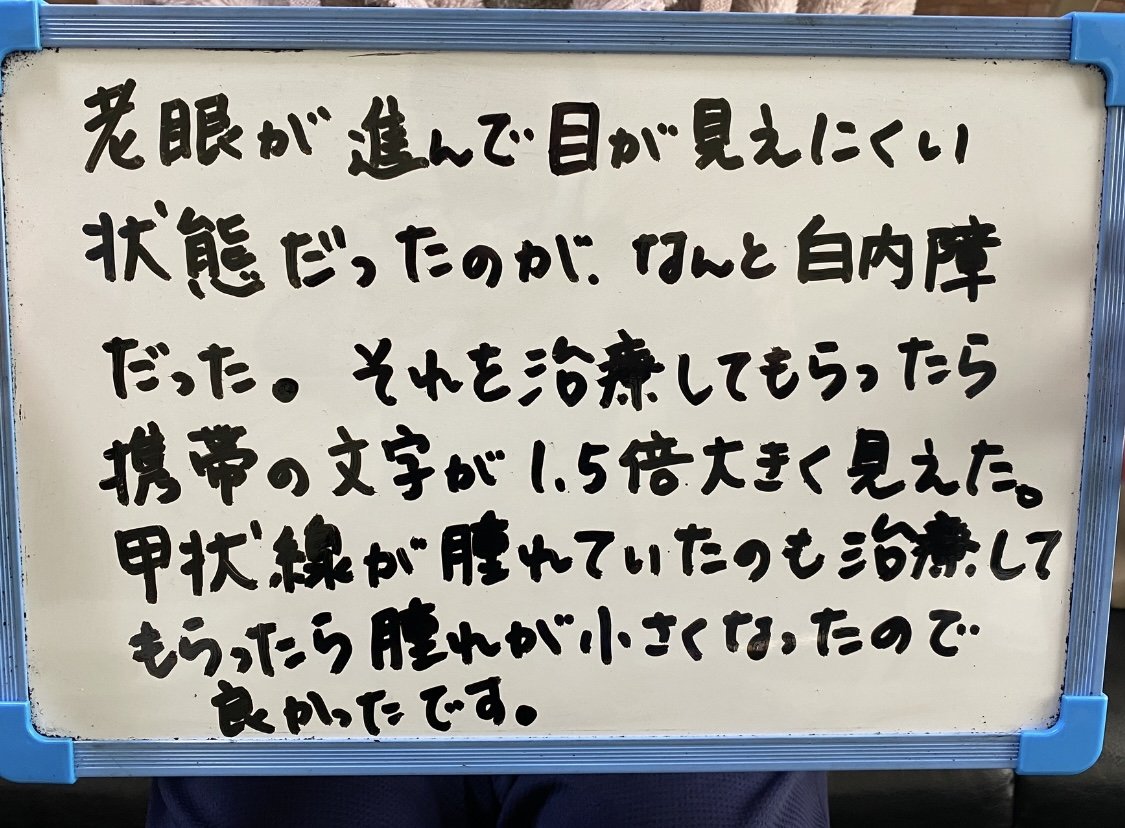 老眼が進んで目が見えにくい
状態だったのが、なんと白内障
だった。それを治療してもらったら
携帯の文字が1.5倍大きく見えた。
甲状線が腫れていたのも治療して
もらったら腫れが小さくなったので
良かったです。